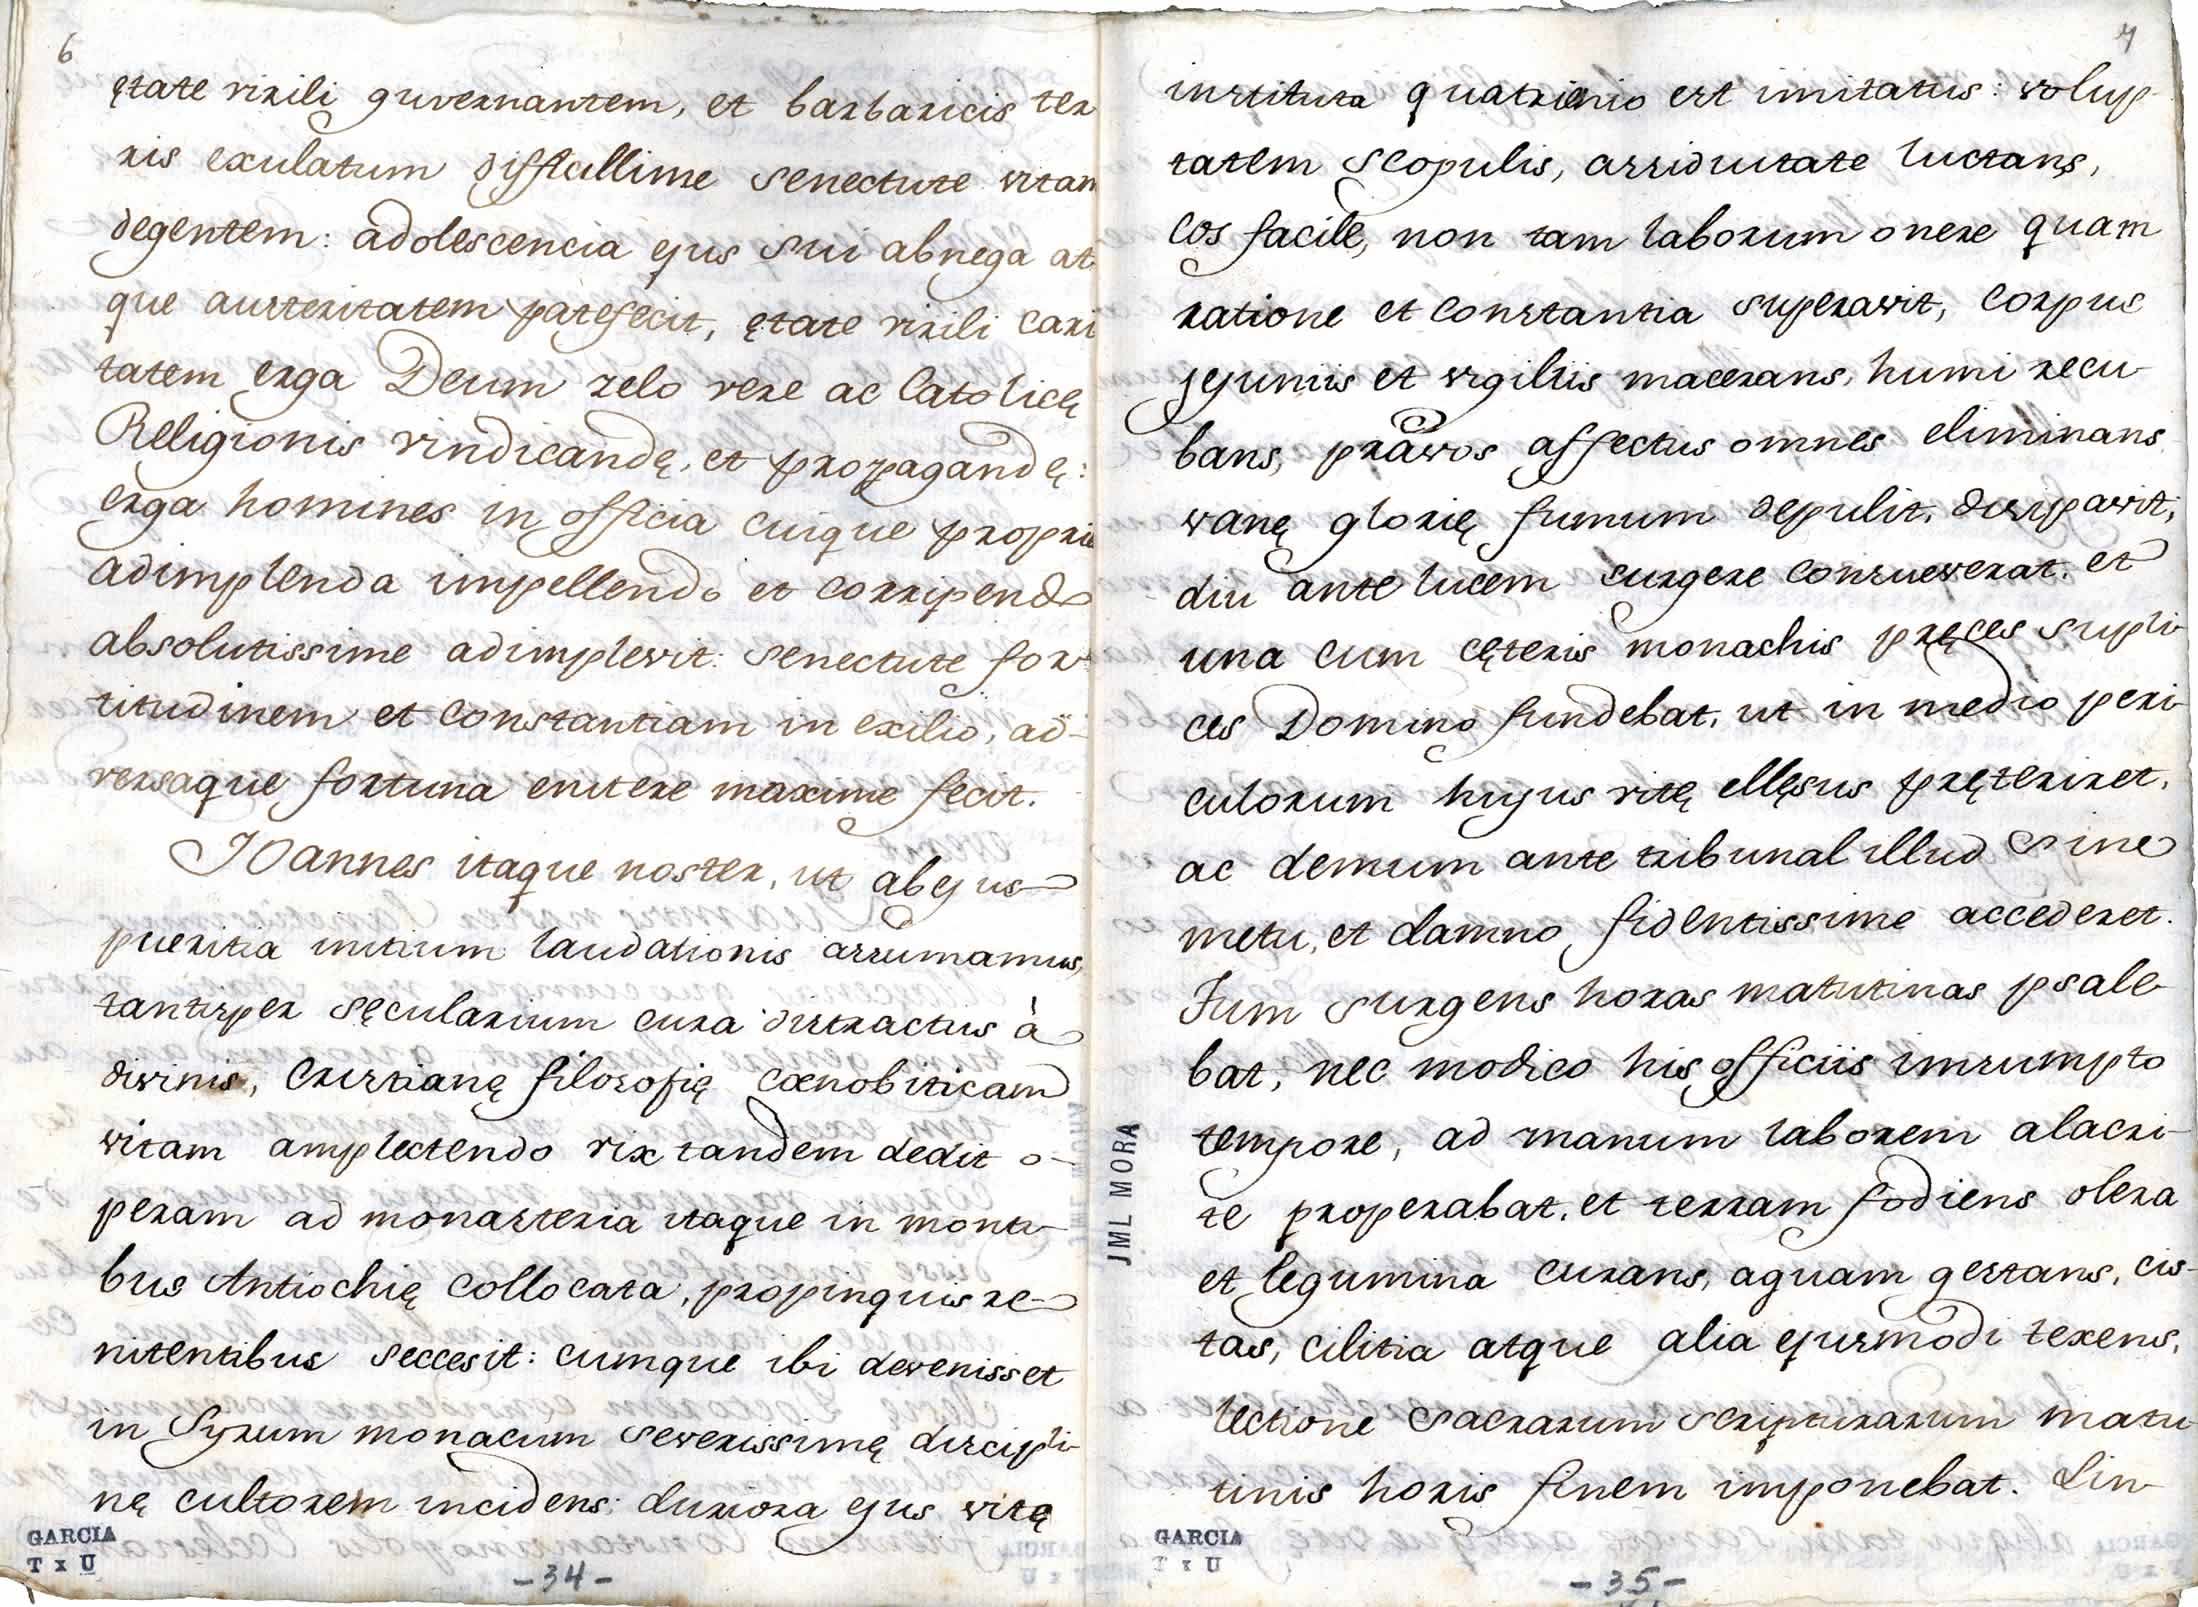 6
ętate virili guvernantem, et barbaricis ter
ris exulatum difficillime senectute vitam
degentem: adolescencia ejus sui abnega at
que austeritatem patefecit, ętate virili cari
tatem erga Deum zelo vere ac Catolicę
Religionis vindicandę, et propagandę:
erga homines in officia cuique propria
adimplenda impellendo et corripiendo
absolutissime adimplevit: senectute for-
titudinem et constantiam in exilio, ad-
versaque fortuna enitere maxime fecit.
Joannes itaque noster, ut ab ejus
pueritia initium laudationis assumamus,
tantisper sęcularium cura distractus à
divinis, Cristianę filosofię cœnobiticam
vitam amplectendo vix tandem dedit o-
peram ad monasteria itaque in monti-
bus Antiochię collocata, propinquis re-
nitentibus seccesit: cumque ibi devenisset
in Syrum monacum severissimę discipli-
nę cultorem incidens: duriora ejus vitę
GARCIA
T x U
-34-
7
instituta quatrienio est imitatus: volup-
tatem scopulis, assiduitate luctans,
cos facile, non tam laborum onere quam
ratione et constantia superavit, corpus
jejuniis et vigiliis macerans, humi recu-
bans, pravos affectus omnes eliminans
vanę glorię fumum depulit, dissipavit;
diu ante lucem surgere consueverat, et
una cum cęteris monachis pręces supli-
ces Domino fundebat, ut in medio peri-
culorum hujus vitę ellęsus pręteriret,
ac demum ante tribunal illud sine
metu, et damno fidentissime accederet.
Tum surgens horas matutinas psale-
bat, nec modico his officiis imsumpto
tempore, ad manum laborem alacri-
te properabat, et terram fodiens olera
et legumina curans, aquam gestans, cis-
tas, cilitia atque alia ejusmodi texens,
lectione sacrarum scripturarum matu-
tinis horis finem imponebat. Lin-
JML MORA
GARCIA
T x U
-35-